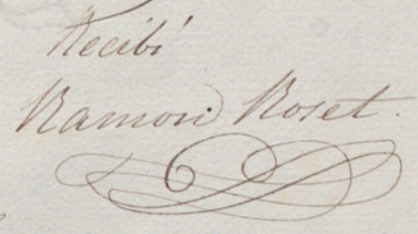 Recibí
Ramon Roset.